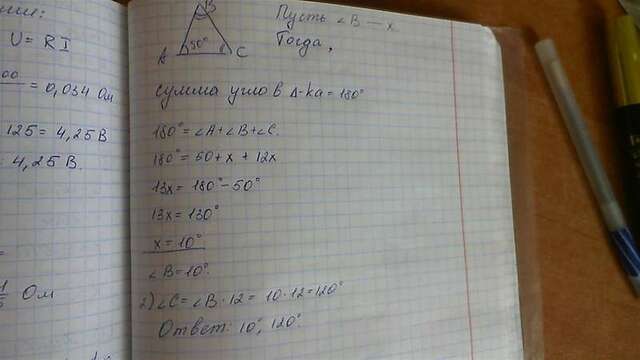 U = RI
= 0,034 Ом
125 = 4,25 В
4,25 В.
Ом
B
A 50° C
Пусть ∠B — x
Тогда,
сумма углов Δ-ка = 180°
180° = ∠A + ∠B + ∠C.
180° = 50 + x + 12x
13x = 180° - 50°
13x = 130°
x = 10°
∠B = 10°.
2) ∠C = ∠B · 12 = 10 · 12 = 120°
Ответ: 10°, 120°.